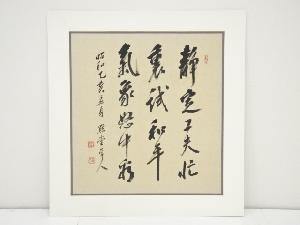 静定工夫忙
裏試和平
氣象怒中看
昭和乙亥五月